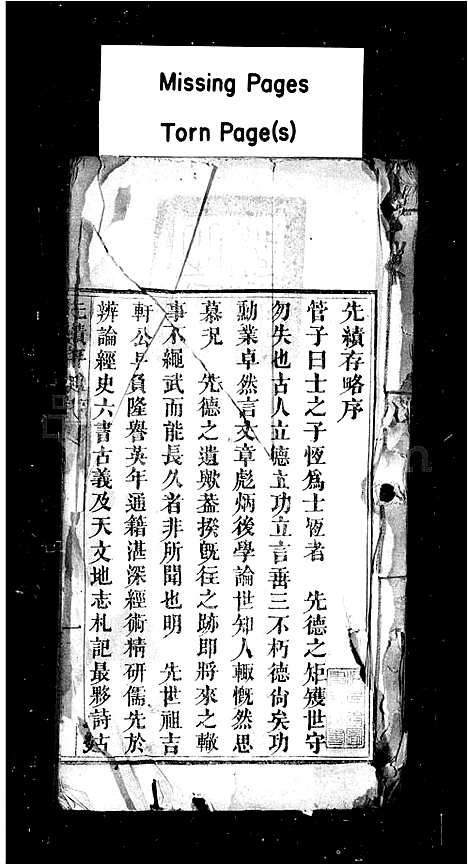 Missing Pages
Torn Page(s)
先績存略序
管子曰士之子恆爲士恆者　先德之矩矱世守
勿失也古人立德立功立言垂三不朽德尙矣功
勳業卓然言文章彪炳後學論世知人輒慨然思
慕況　先德之遺徽葢揆旣往之跡即將來之轍
事不繩武而能長久者非所聞也明　先世祖吉
軒公少負隆譽英年通籍湛深經術精研儒先於
辨論經史六書古義及天文地志札記最夥詩古